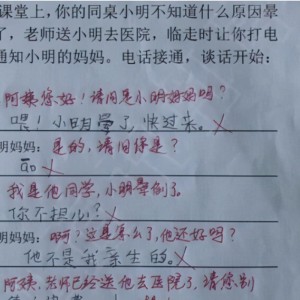 课堂上，你的同桌小明不知道什么原因晕
了，老师送小明去医院，临走时让你打电
通知小明的妈妈。电话接通，谈话开始：
阿姨您好！请问是小明妈妈吗？
喂！小明晕了，快过来。
明妈妈：是的，请问你是？
我是他同学，小明晕倒了。
你不担心？
明妈妈：啊？这是怎么了，他还好吗？
他不是我亲生的。
阿姨，老师已经送他去医院了，请您别